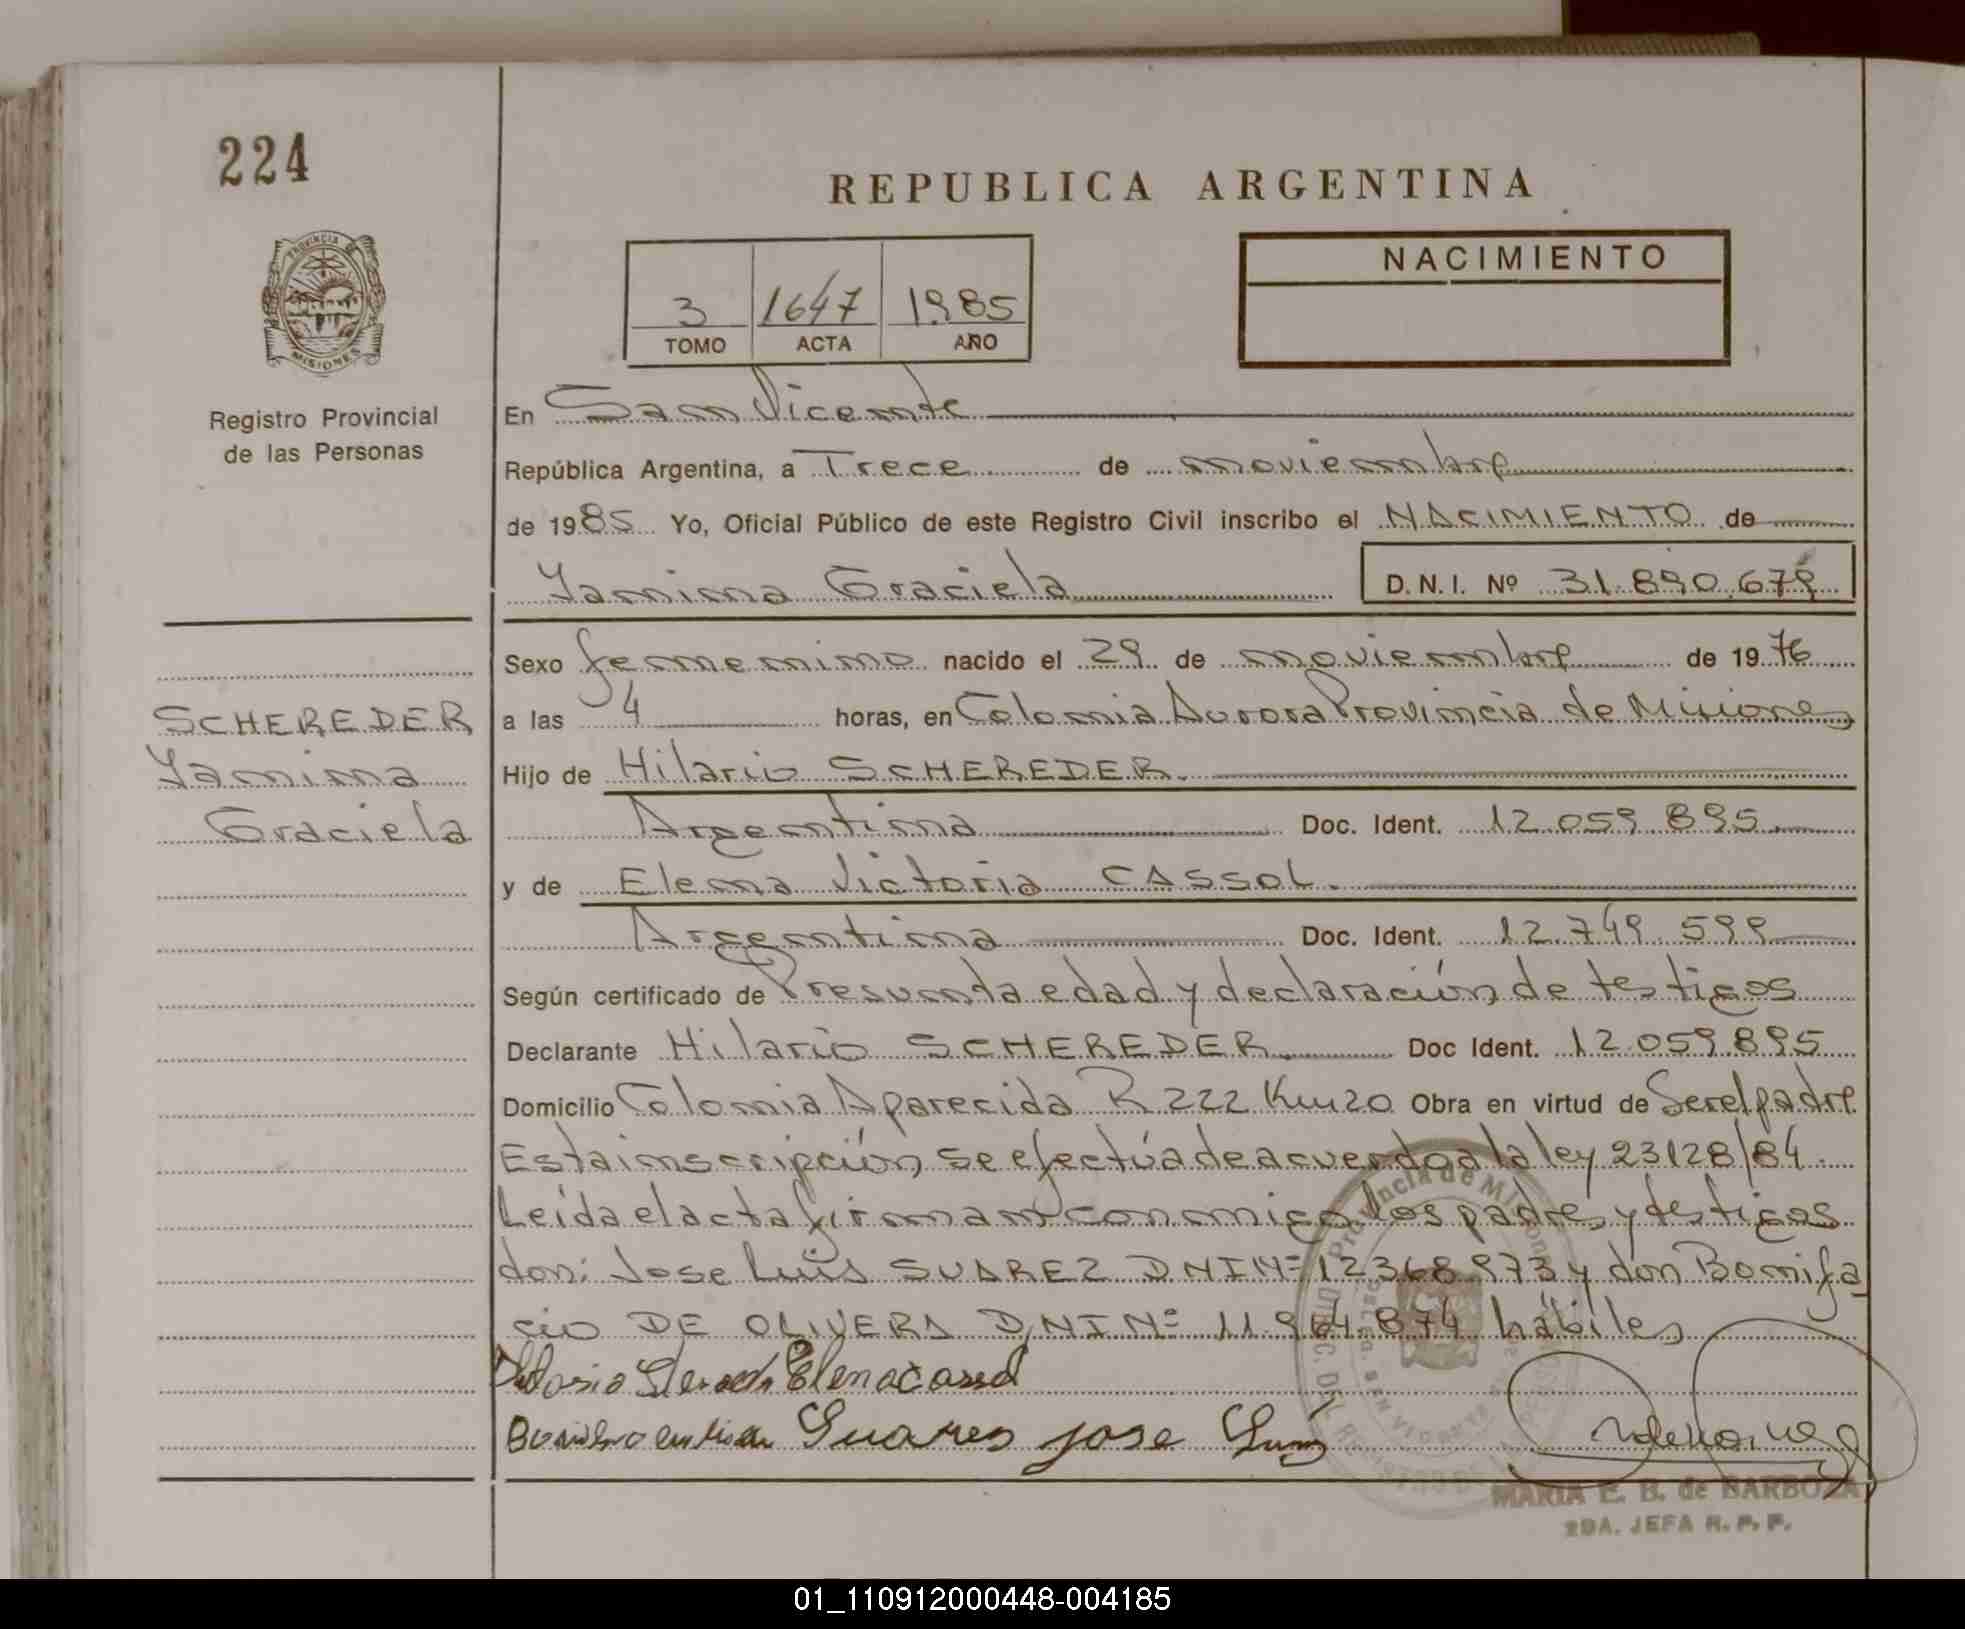 224
REPUBLICA ARGENTINA
NACIMIENTO
3 1647 1985
TOMO ACTA AÑO
PROVINCIA DE
MISIONES
Registro Provincial
de las Personas
En San Vicente
República Argentina, a Trece de noviembre
de 1985 Yo, Oficial Público de este Registro Civil inscribo el NACIMIENTO de
Yanina Graciela D.N.I. Nº 31.890.679
Sexo femenino nacido el 29 de noviembre de 1976
SCHEREDER
Yanina
Graciela
a las 4 horas, en Colonia Aurora Provincia de Misiones
Hijo de Hilario SCHEREDER.
Argentina Doc. Ident. 12.059.895
y de Elena Victoria CASSOL.
Argentina Doc. Ident. 12.749.599
Según certificado de Presunta edad y declaración de testigos
Declarante Hilario SCHEREDER. Doc Ident. 12.059.895
Domicilio Colonia Aparecida R 222 Km 20 Obra en virtud de Ser el padre
Esta inscripción se efectúa de acuerdo a la ley 23128/84.
Leída el acta firman conmigo los padres y testigos
don: Jose Luis SUAREZ DNI Nº 12368973 y don Bonifa
cio DE OLIVERA DNI Nº 11.964.874 hábiles
Elena Cassol
Suares jose Luis
Provincia de Misiones
MARIA E. B. de BARBOZA
2DA. JEFA R. P. P.
01_110912000448-004185